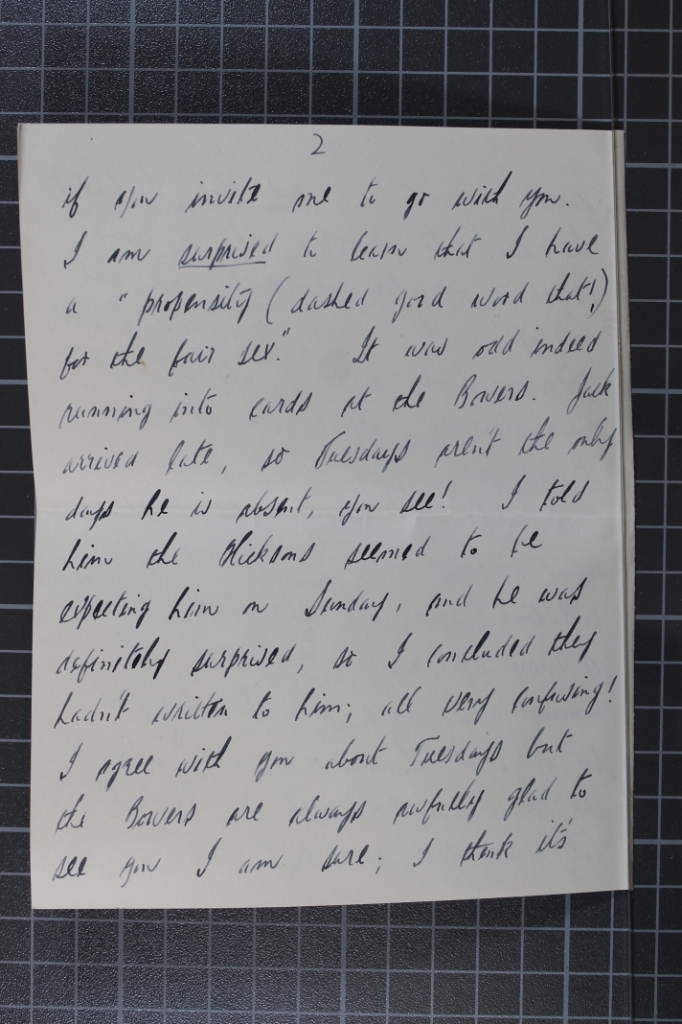 2
if you invite me to go with you.
I am surprised to learn that I have
a "propensity (dashed good word that!)
for the fair sex." It was odd indeed
running into cards at the Bowers. Jack
arrived late, so Tuesdays aren't the only
days he is absent, you see! I told
him the Hicksons seemed to be
expecting him on Sunday, and he was
definitely surprised, so I concluded they
hadn't written to him; all very confusing!
I agree with you about Tuesdays but
the Bowers are always awfully glad to
see you I am sure; I think it's